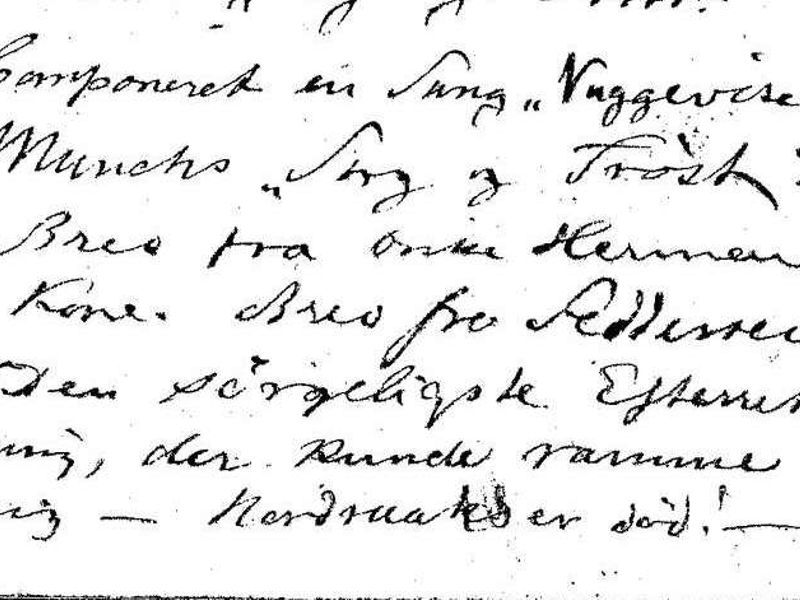 Componeret en Sang „Vuggevise
Munchs „Sorg og Tröst"
Brev fra Onkel Herman
Kone. Brev fra Feddersen
Den sörgeligste Efterret
ning, der kunde ramme
mig — Nordraak er död! —